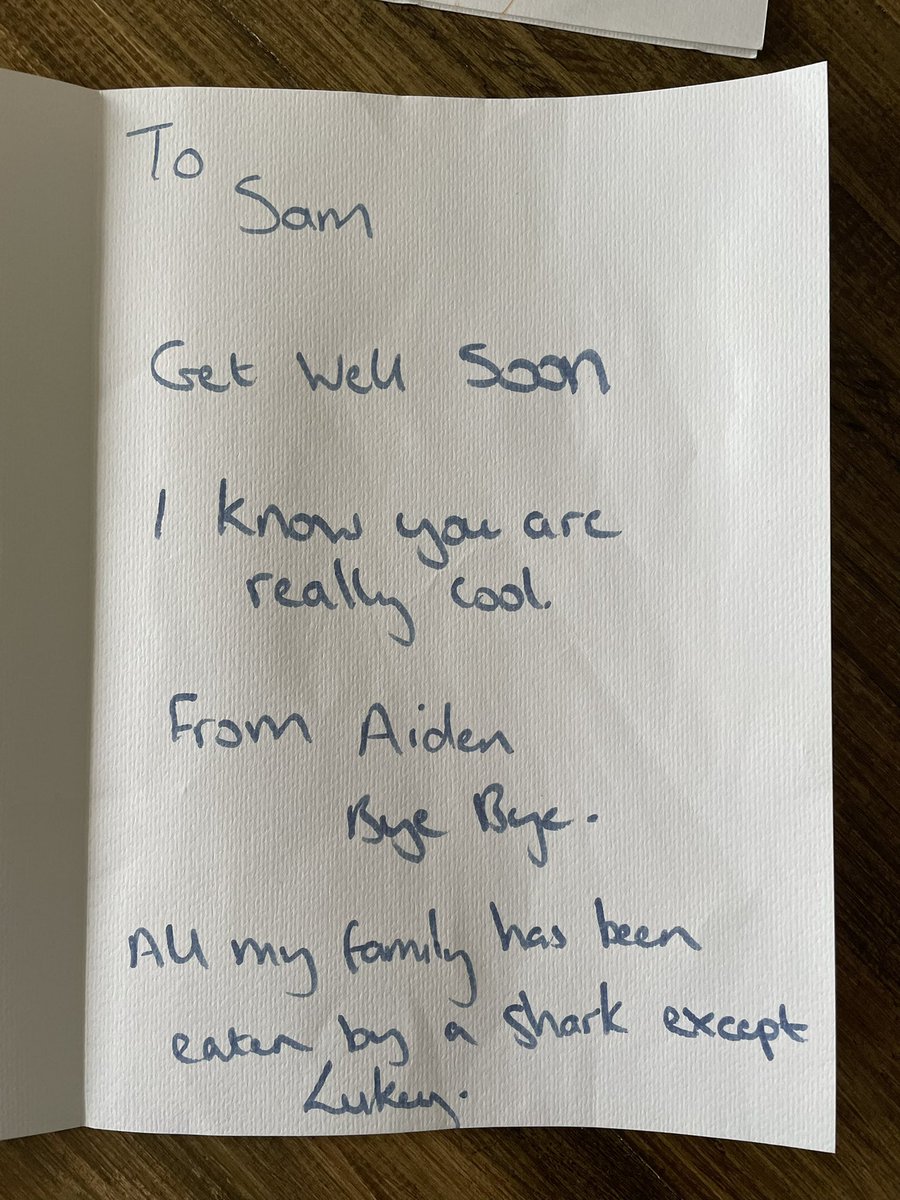 To
Sam
Get Well Soon
I know you are
really cool.
From Aiden
Bye Bye.
All my family has been
eaten by a shark except
Lukey.